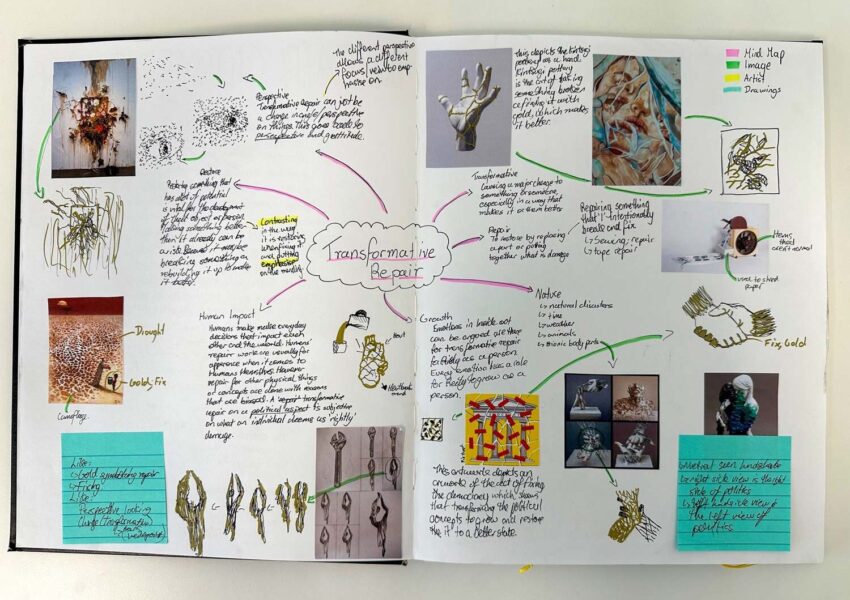 The different perspective
allows a different
focus/view to emp
hasise on.
Perspective
Transformative Repair can just be
a change in angle/perspective
on things. This goes back to
perspective and gratitude.
Restore
Restoring something that
has a lot of potential
is vital for the development
of that object or person.
Making something better
than it already can be
a risk because it maybe
breaking something or
rebuilding it up to make
it better.
Contrasting
in the way
it is restoring
when fixing it
and putting
emphasise
on the
Transformative
Repair
Human Impact
Humans make make everyday
decisions that impact each
other and the world. Humans'
repair work are usually for
when it comes to
Humans themselves. However
repair for other physical things
or concepts are done with reasons
that are biased. A repair transformative
repair on a political aspect is subjective
on what an individual deems as 'rightly'
damage.
Drought
Gold, Fix
Like:
Gold symbolising repair
Tricky
Like
Perspective looking
(transformation)
this depicts the Kintsugi
pottery as a hand.
Kintsugi pottery
is the art of taking
something broken
a fixing it with
gold, which makes
it better.
Mind Map
Image
Artist
Drawings
Transformative
Causing a major change to
something or someone,
especially in a way that
makes it or them better
Repair
To restore by replacing
a part or putting
together what is damage
Repairing something
that 'I' intentionally
break and fix
↳ Sewing; repair
↳ tape repair
Items
that
aren't normal
used to shred
paper
Nature
↳ natural disasters
↳ time
↳ weather
↳ animals
↳ Bionic body parts
Growth
Emotions in Inside out
can be argued are there
for transformative repair
to Riley as a person.
Every emotion has a role
for Riley to grow as a
person.
Fix, Gold
This artwork depicts an
artwork of the act of fixing
the democracy which shows
that transforming the political
concepts to grow and restore
the it to a better state.
right side view is the right
side of politics
left handside view is
the left view of
politics